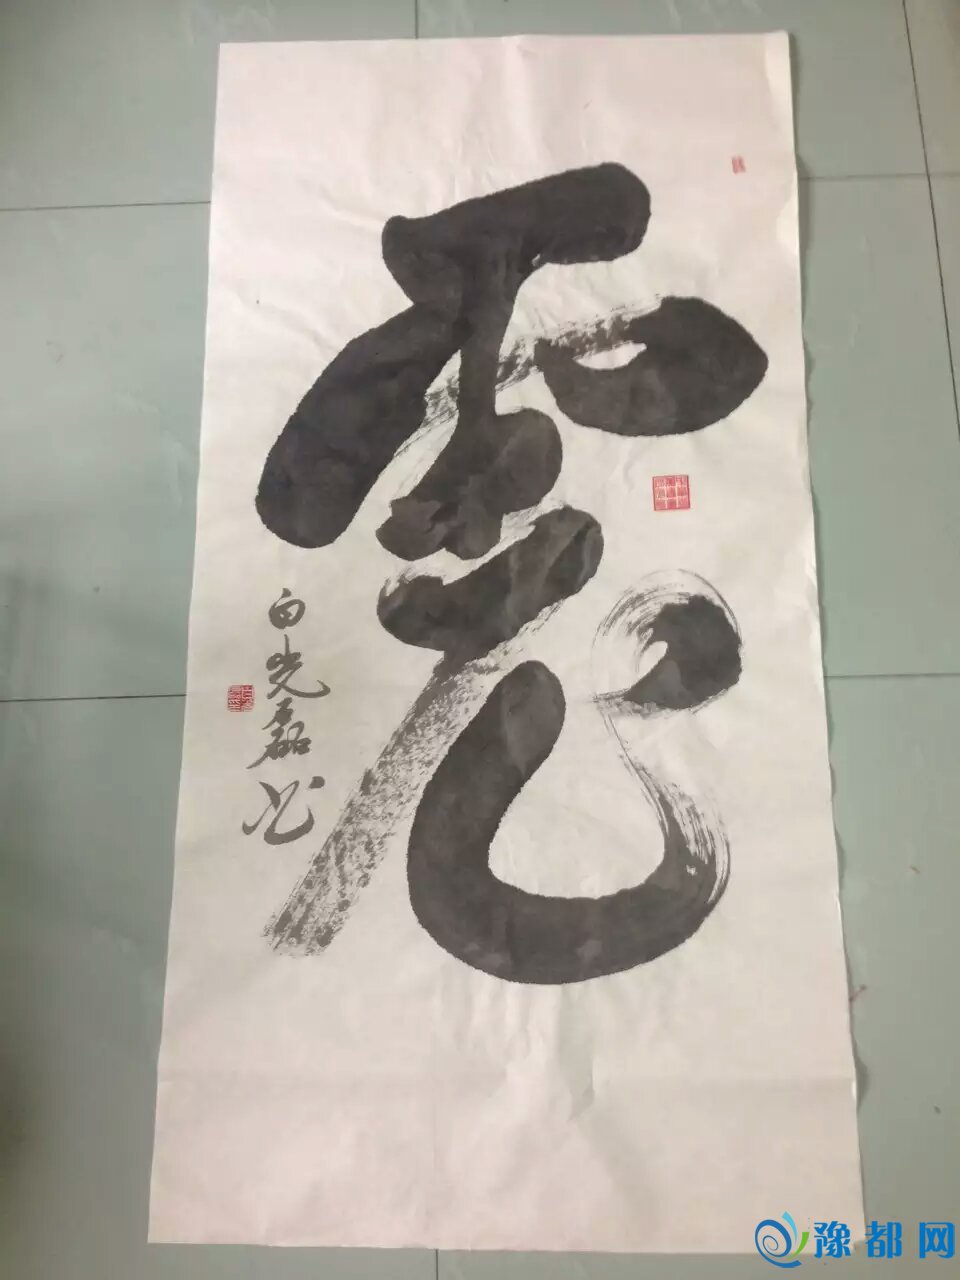 虎
白光磊书
豫都网